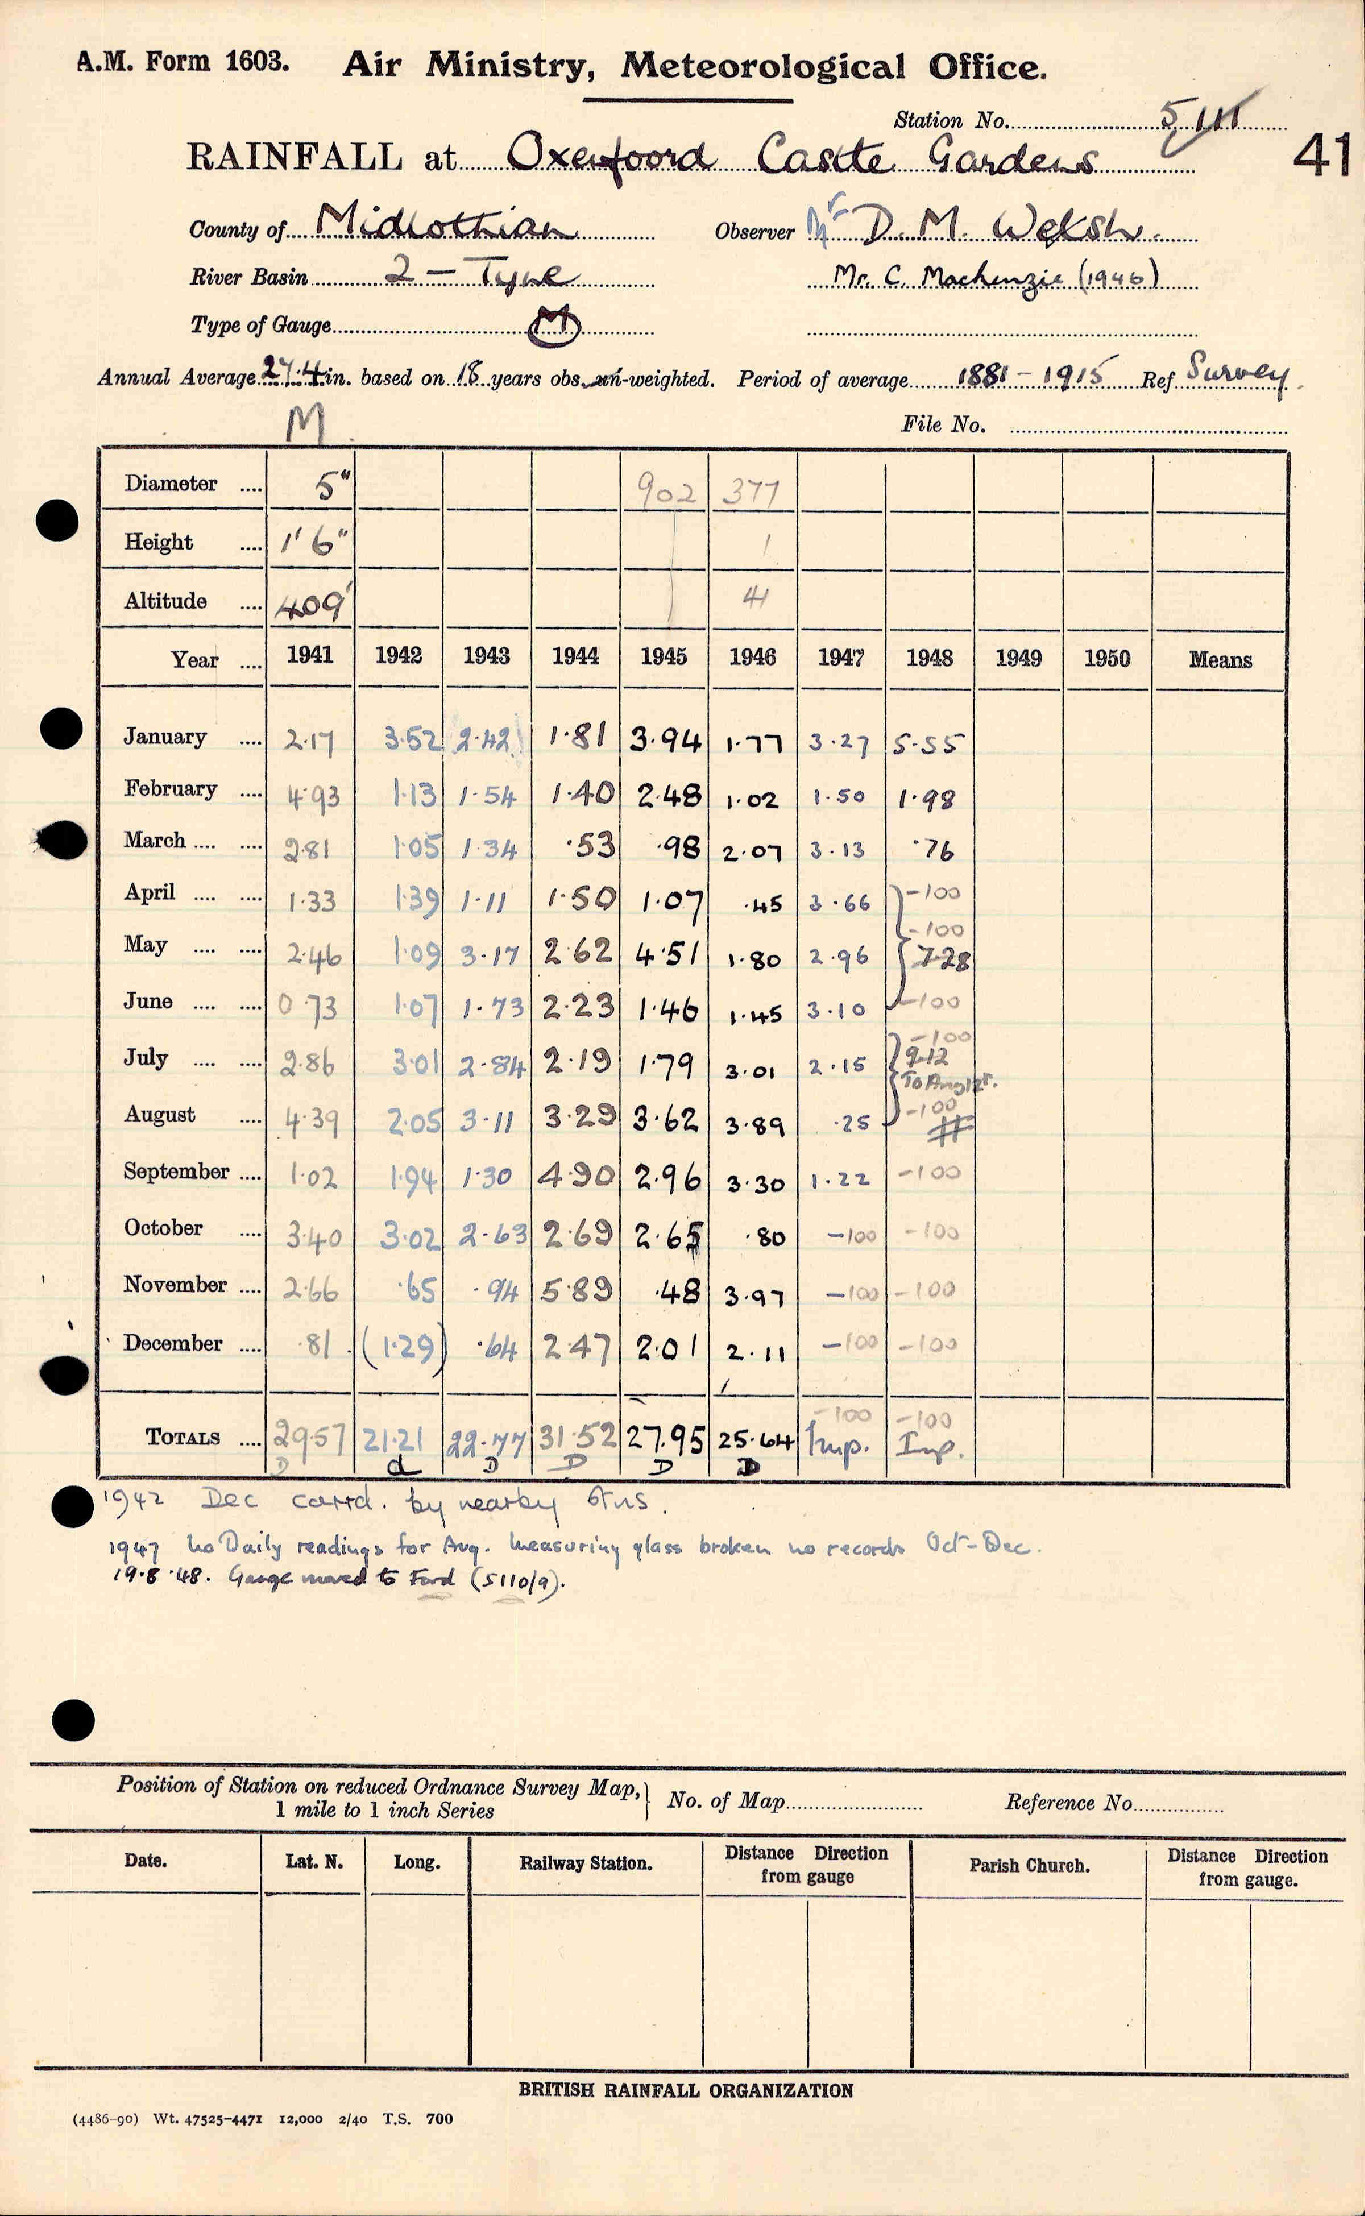 A.M. Form 1603. Air Ministry, Meteorological Office.
Station No. 5111
RAINFALL at Oxenfoord Castle Gardens 41
County of Midlothian Observer Mr D. M. Welsh.
River Basin 2 – Tyne Mr. C. Mackenzie (1946)
Type of Gauge M
Annual Average 27.4 in. based on 18 years obs. un-weighted. Period of average 1881–1915 Ref Survey.
M File No.
Diameter .... 5" 902 377
Height .... 1' 6" 1
Altitude .... 409' 41
Year .... 1941 1942 1943 1944 1945 1946 1947 1948 1949 1950 Means
January .... 2.17 3.52 2.42 1.81 3.94 1.77 3.27 5.55
February .... 4.93 1.13 1.54 1.40 2.48 1.02 1.50 1.98
March .... .... 2.81 1.05 1.34 .53 .98 2.07 3.13 .76
April .... .... 1.33 1.39 1.11 1.50 1.07 .45 3.66 -100
May .... .... 2.46 1.09 3.17 2.62 4.51 1.80 2.96 -100 7.28
June .... .... 0.73 1.07 1.73 2.23 1.46 1.45 3.10 -100
July .... .... 2.86 3.01 2.84 2.19 1.79 3.01 2.15 -100 9.12
To Aug 12r.
August .... 4.39 2.05 3.11 3.29 3.62 3.89 .25 -100
September .... 1.02 1.94 1.30 4.90 2.96 3.30 1.22 -100
October .... 3.40 3.02 2.63 2.69 2.65 .80 -100 -100
November .... 2.66 .65 .94 5.89 .48 3.97 -100 -100
December .... .81 (1.29) .64 2.47 2.01 2.11 -100 -100
-100 -100
TOTALS .... 29.57 21.21 22.77 31.52 27.95 25.64 Imp. Inp.
D d D D D D
1942 Dec corrd. by nearby stns.
1947 No Daily readings for Aug. Measuring glass broken no records Oct-Dec.
19.8.48. Gauge moved to Ford (5110/9).
Position of Station on reduced Ordnance Survey Map, 1 mile to 1 inch Series No. of Map Reference No.
Date. Lat. N. Long. Railway Station. Distance Direction from gauge Parish Church. Distance Direction from gauge.
BRITISH RAINFALL ORGANIZATION
(4486-90) Wt. 47525-4471 12,000 2/40 T.S. 700